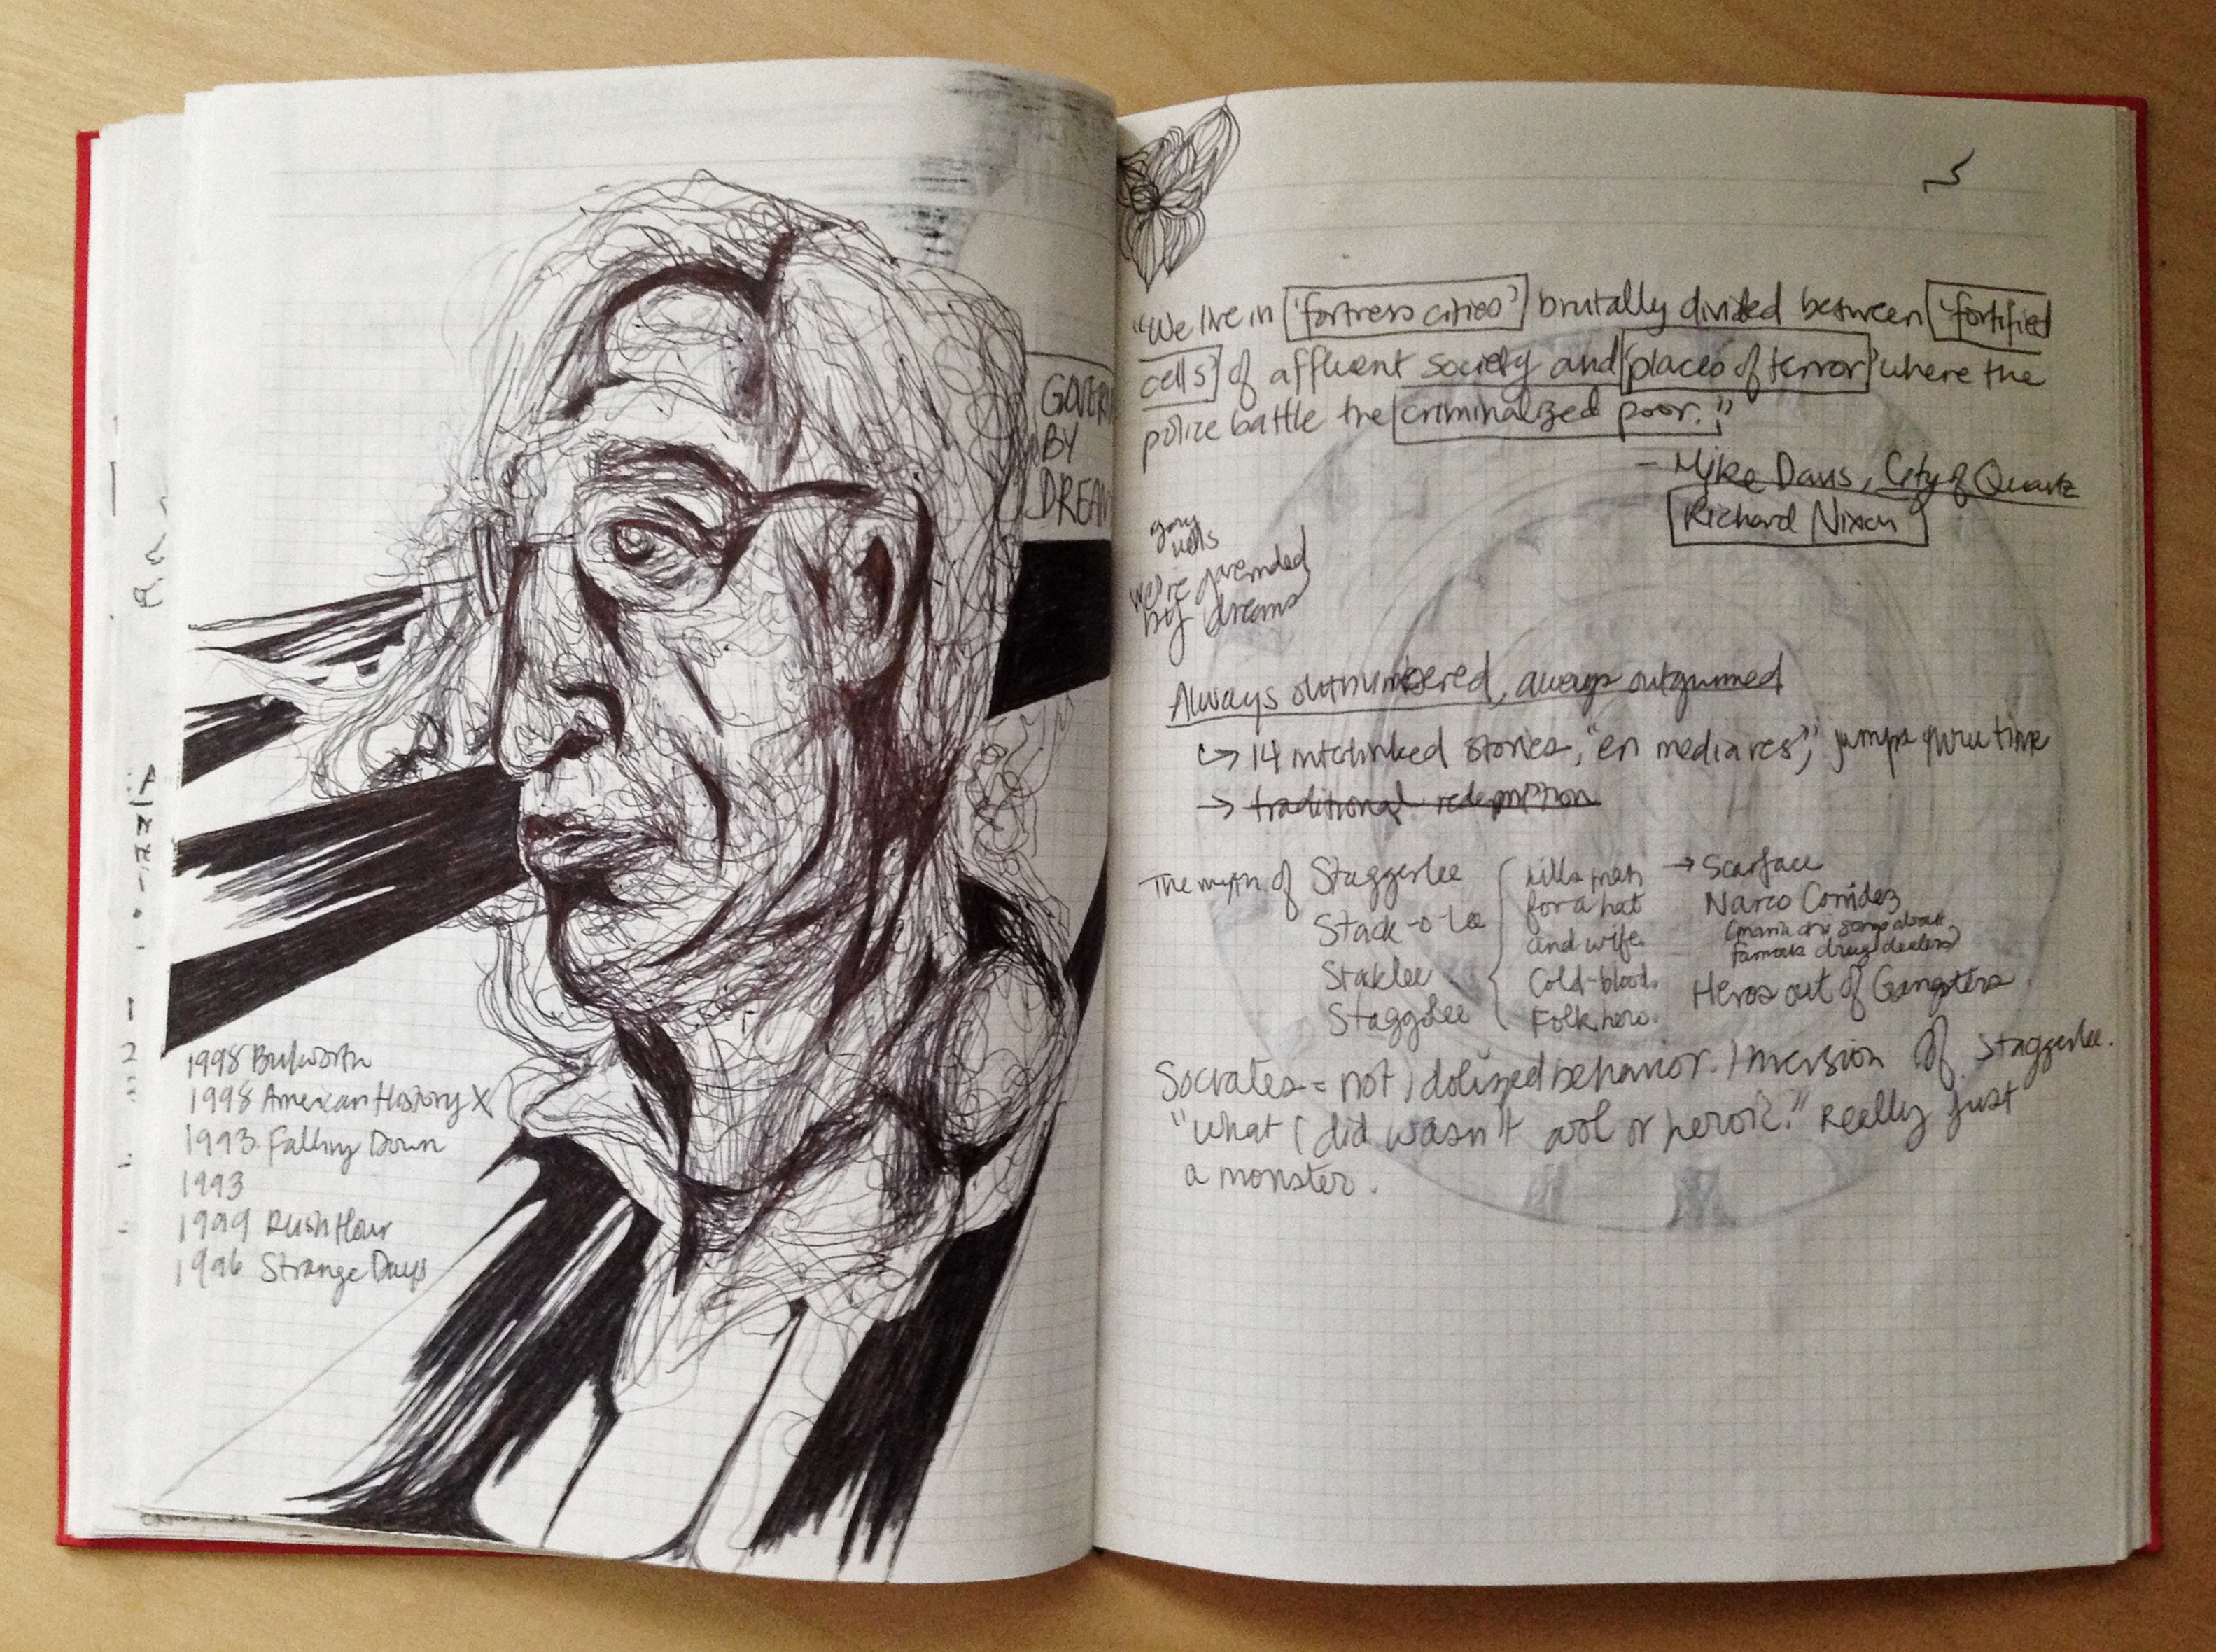 GOVER
BY
DREAM
1998 Bulworth
1998 American History X
1993 Falling Down
1993
1999 Rush Hour
1996 Strange Days
"We live in 'fortress cities' brutally divided between 'fortified
cells' of affluent society and 'places of terror' where the
police battle the criminalized poor."
- Mike Davis, City of Quartz
Richard Nixon
we're governded
by dreams
Always outnumbered, always outgunned
→ 14 interlinked stories, "en media res," jumps thru time
→ traditional redemption
The myth of Staggerlee
Stack-o-Lee
Staklee
Staggolee
kills man
for a hat
and wife.
Cold-blood.
Folk hero.
→ Scarface
Narco Corridez
(mariachi songs about
famous drug dealers)
Heros out of Gangsters
Socrates = not idolized behavior. Inversion of Staggerlee.
"what I did wasn't cool or heroic." Really just
a monster.